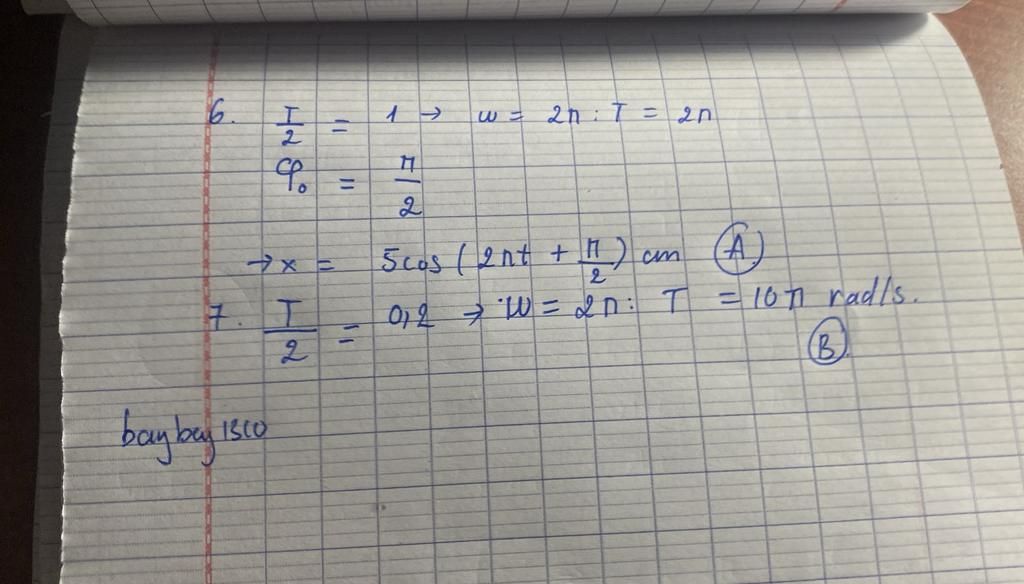 6. T/2 = 1 → w = 2π : T = 2π
φ₀ = π/2
→ x = 5cos(2πt + π/2) cm (A)
7. T/2 = 0,2 → w = 2π : T = 10π rad/s.
(B)
baybay1310